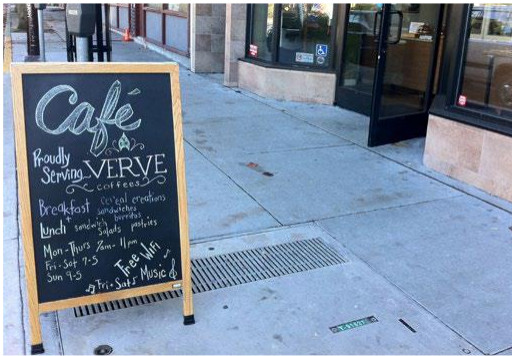 Café
Proudly
Serving VERVE
coffees
Breakfast cereal creations
sandwiches
+ burritos
Lunch sandwich
salads pastries
Mon-Thurs 7am-11pm
Fri-Sat 7-5
Sun 9-5
Free WiFi
Fri-Sats Music